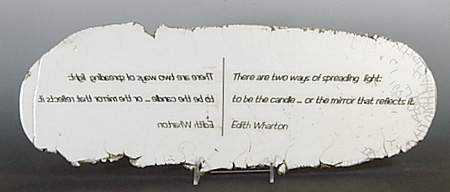 There are two ways of spreading light:
to be the candle ... or the mirror that reflects it.
Edith Wharton
There are two ways of spreading light:
to be the candle ... or the mirror that reflects it.
Edith Wharton